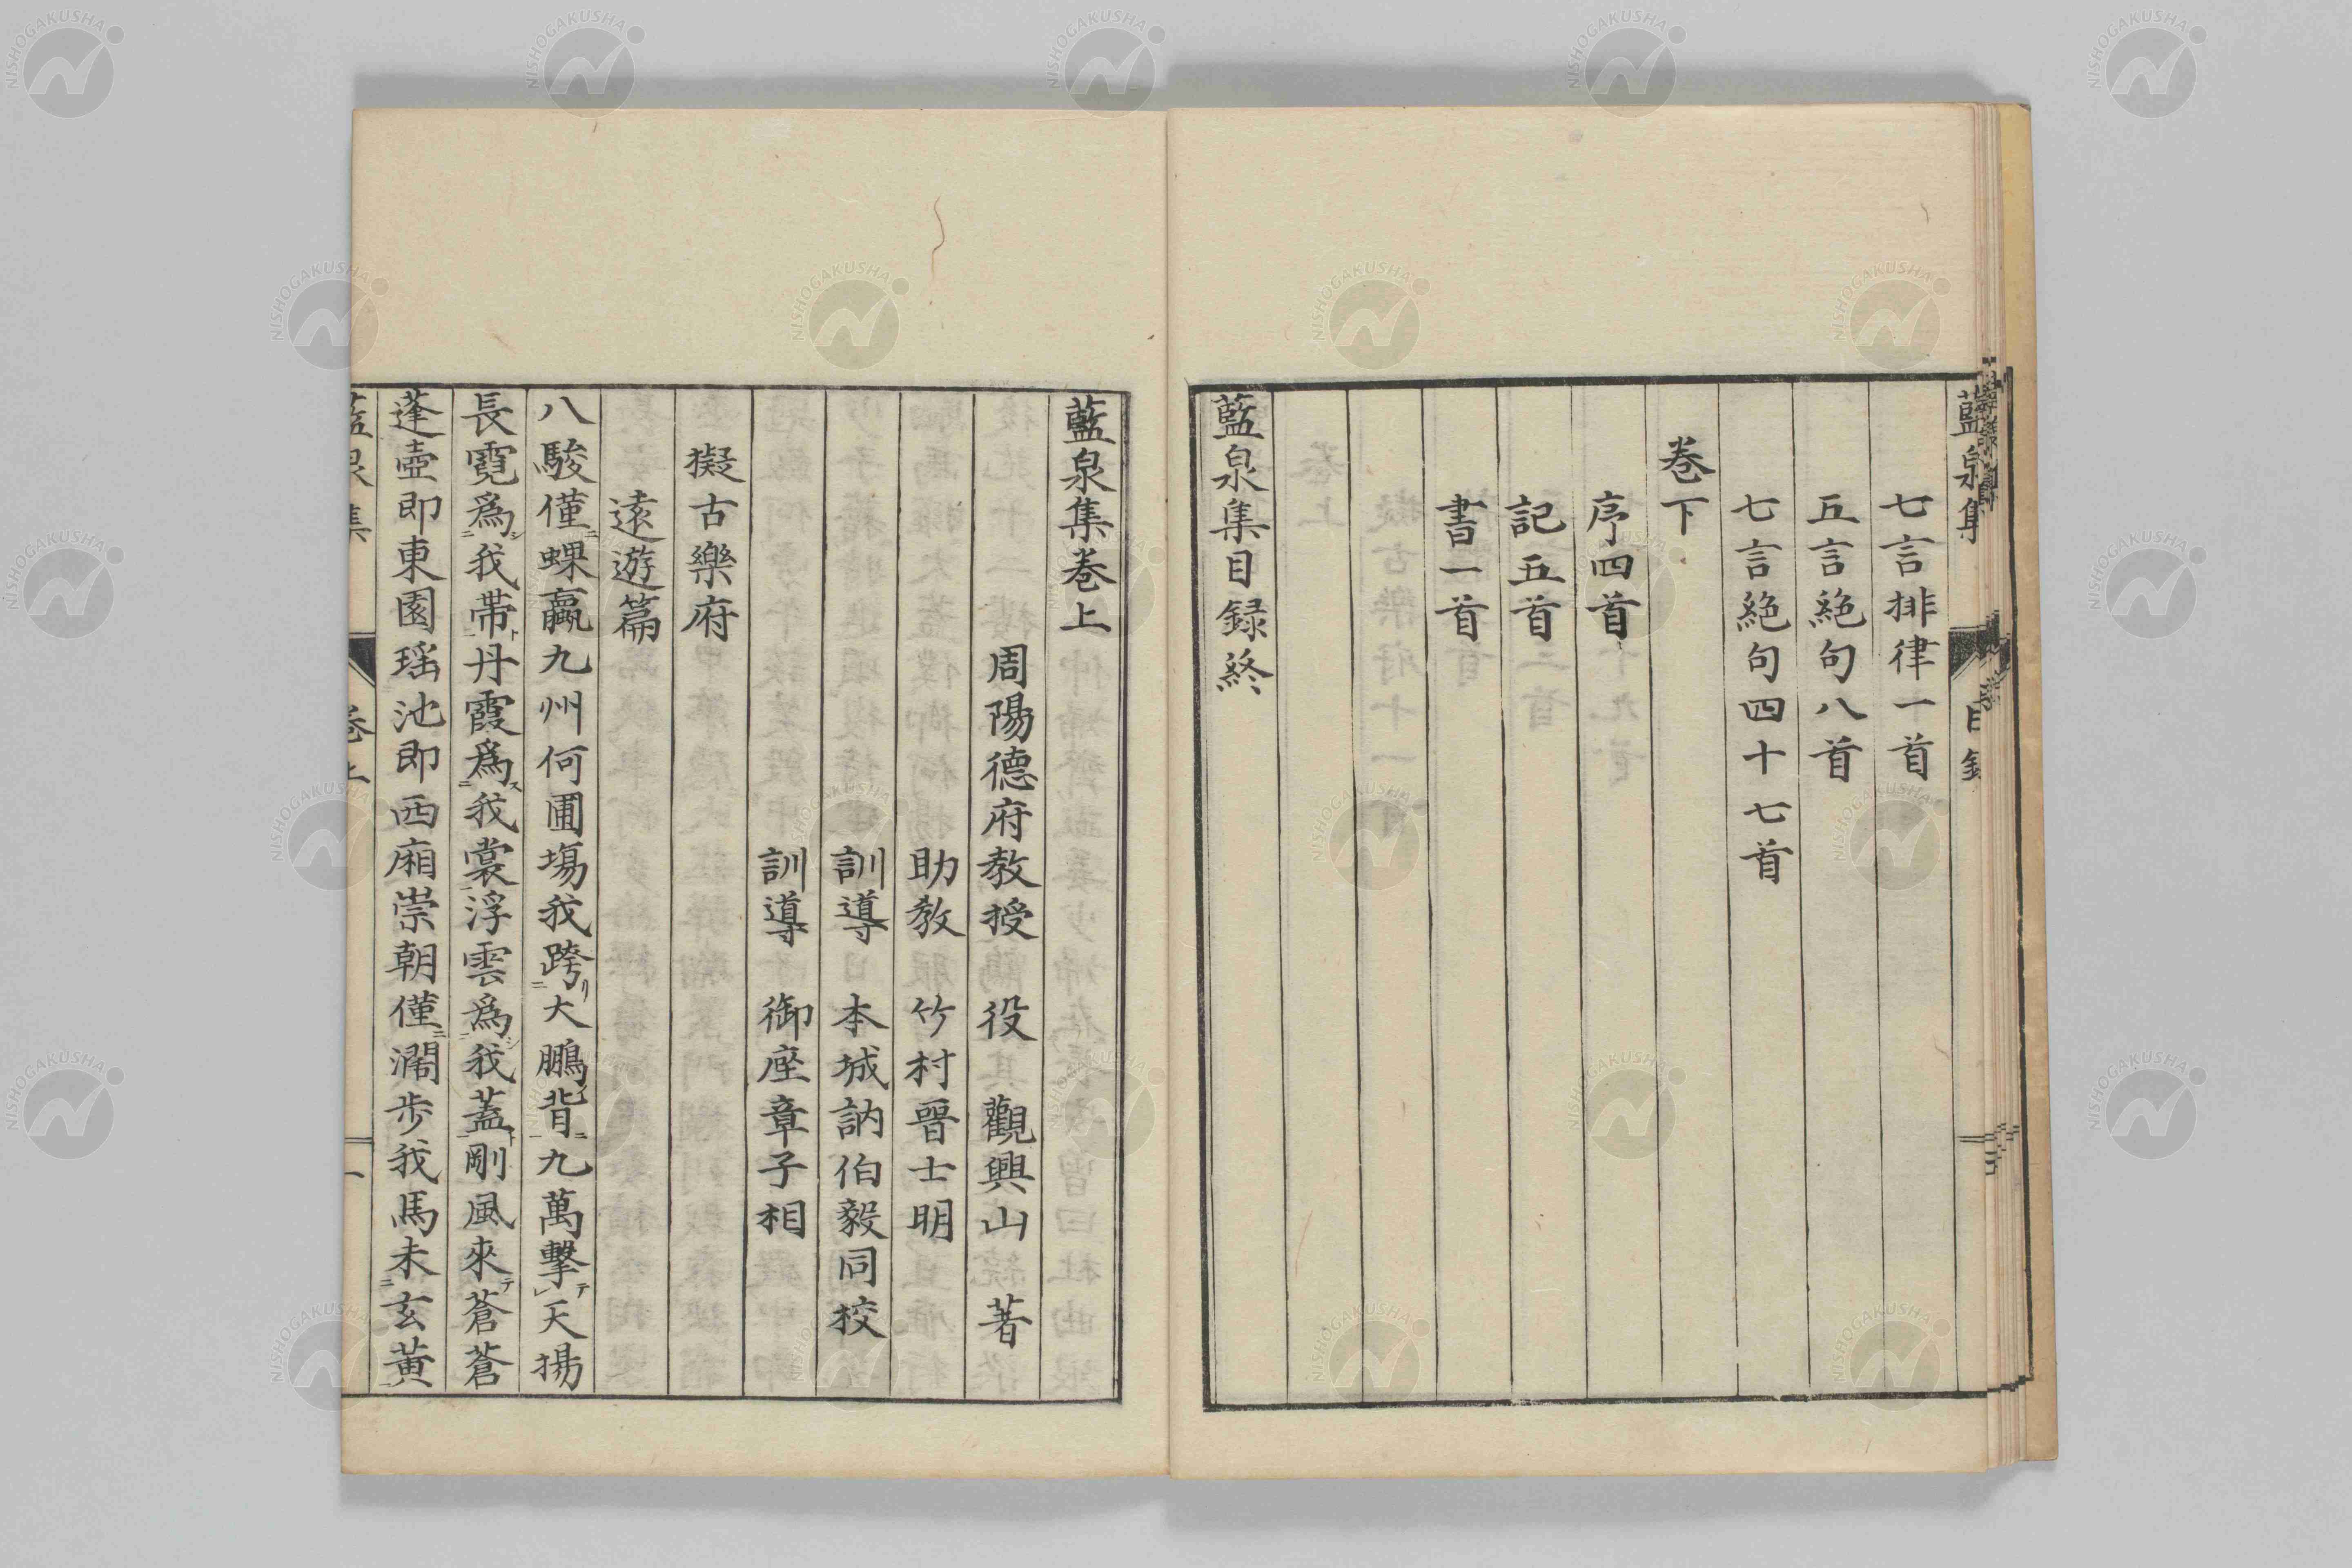 七言排律一首
五言絶句八首
七言絶句四十七首
巻下
序四首
記五首
書一首
藍泉集目録終
藍泉集巻上
周陽德府教授 役 觀興山 著
助教 竹村晉士明
訓導 本城訥伯毅同挍
訓導 御座章子相
擬古樂府
遠遊篇
八駿僅蜾蠃九州何圃場我跨大鵬背九萬擊天揚
長霓爲我帶丹霞爲我裳浮雲爲我蓋剛風來蒼蒼
蓬壺即東園瑶池即西廂崇朝僅濶歩我馬未玄黃
NISHOGAKUSHA